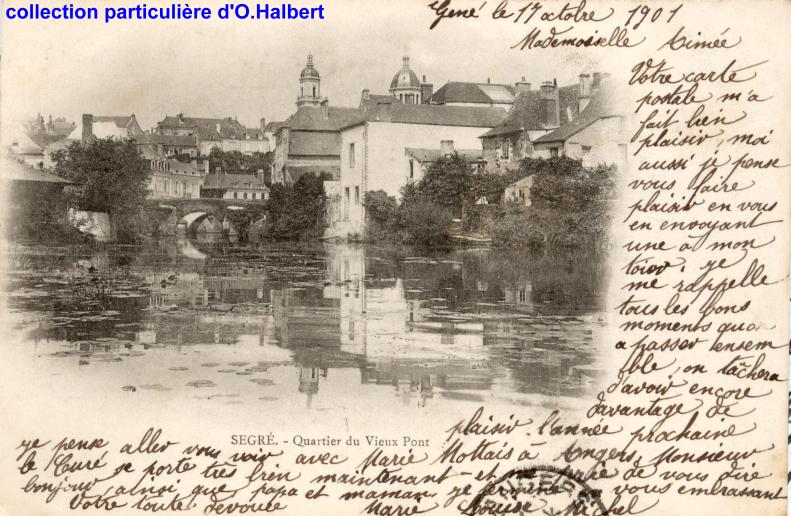 collection particulière d'O.Halbert
Gené le 17 octobre 1901
Mademoiselle Aimée
Votre carte
postale m'a
fait bien
plaisir, moi
aussi je pense
vous faire
plaisir en vous
en envoyant
une à mon
tour. je
me rappelle
tous les bons
moments qu'on
a passer ensem
ble, on tâchera
d'avoir encore
davantage de
plaisir l'année prochaine
je pense aller vous voir avec Marie Mottais à Angers, Monsieur
le Curé se porte très bien maintenant et me prie de vous dire
bonjour, ainsi que papa et maman. je termine en vous embrassant
Votre toute dévouée Marie Louise
SEGRÉ. - Quartier du Vieux Pont